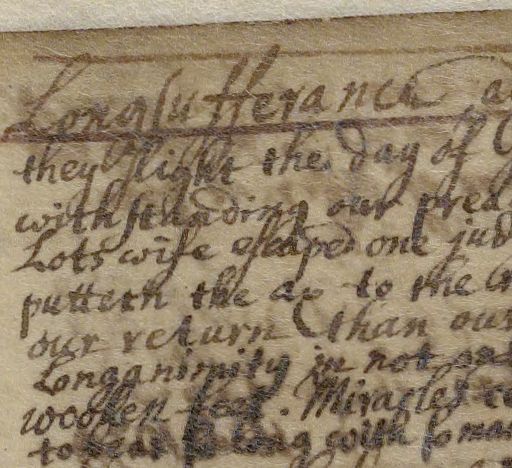 Longsufferance
they slight the day of
withstanding our
Lots wife escaped one
putteth the ax to the
our return than our
Longanimity in not
wooden feet. Miracles
to bear so long with so